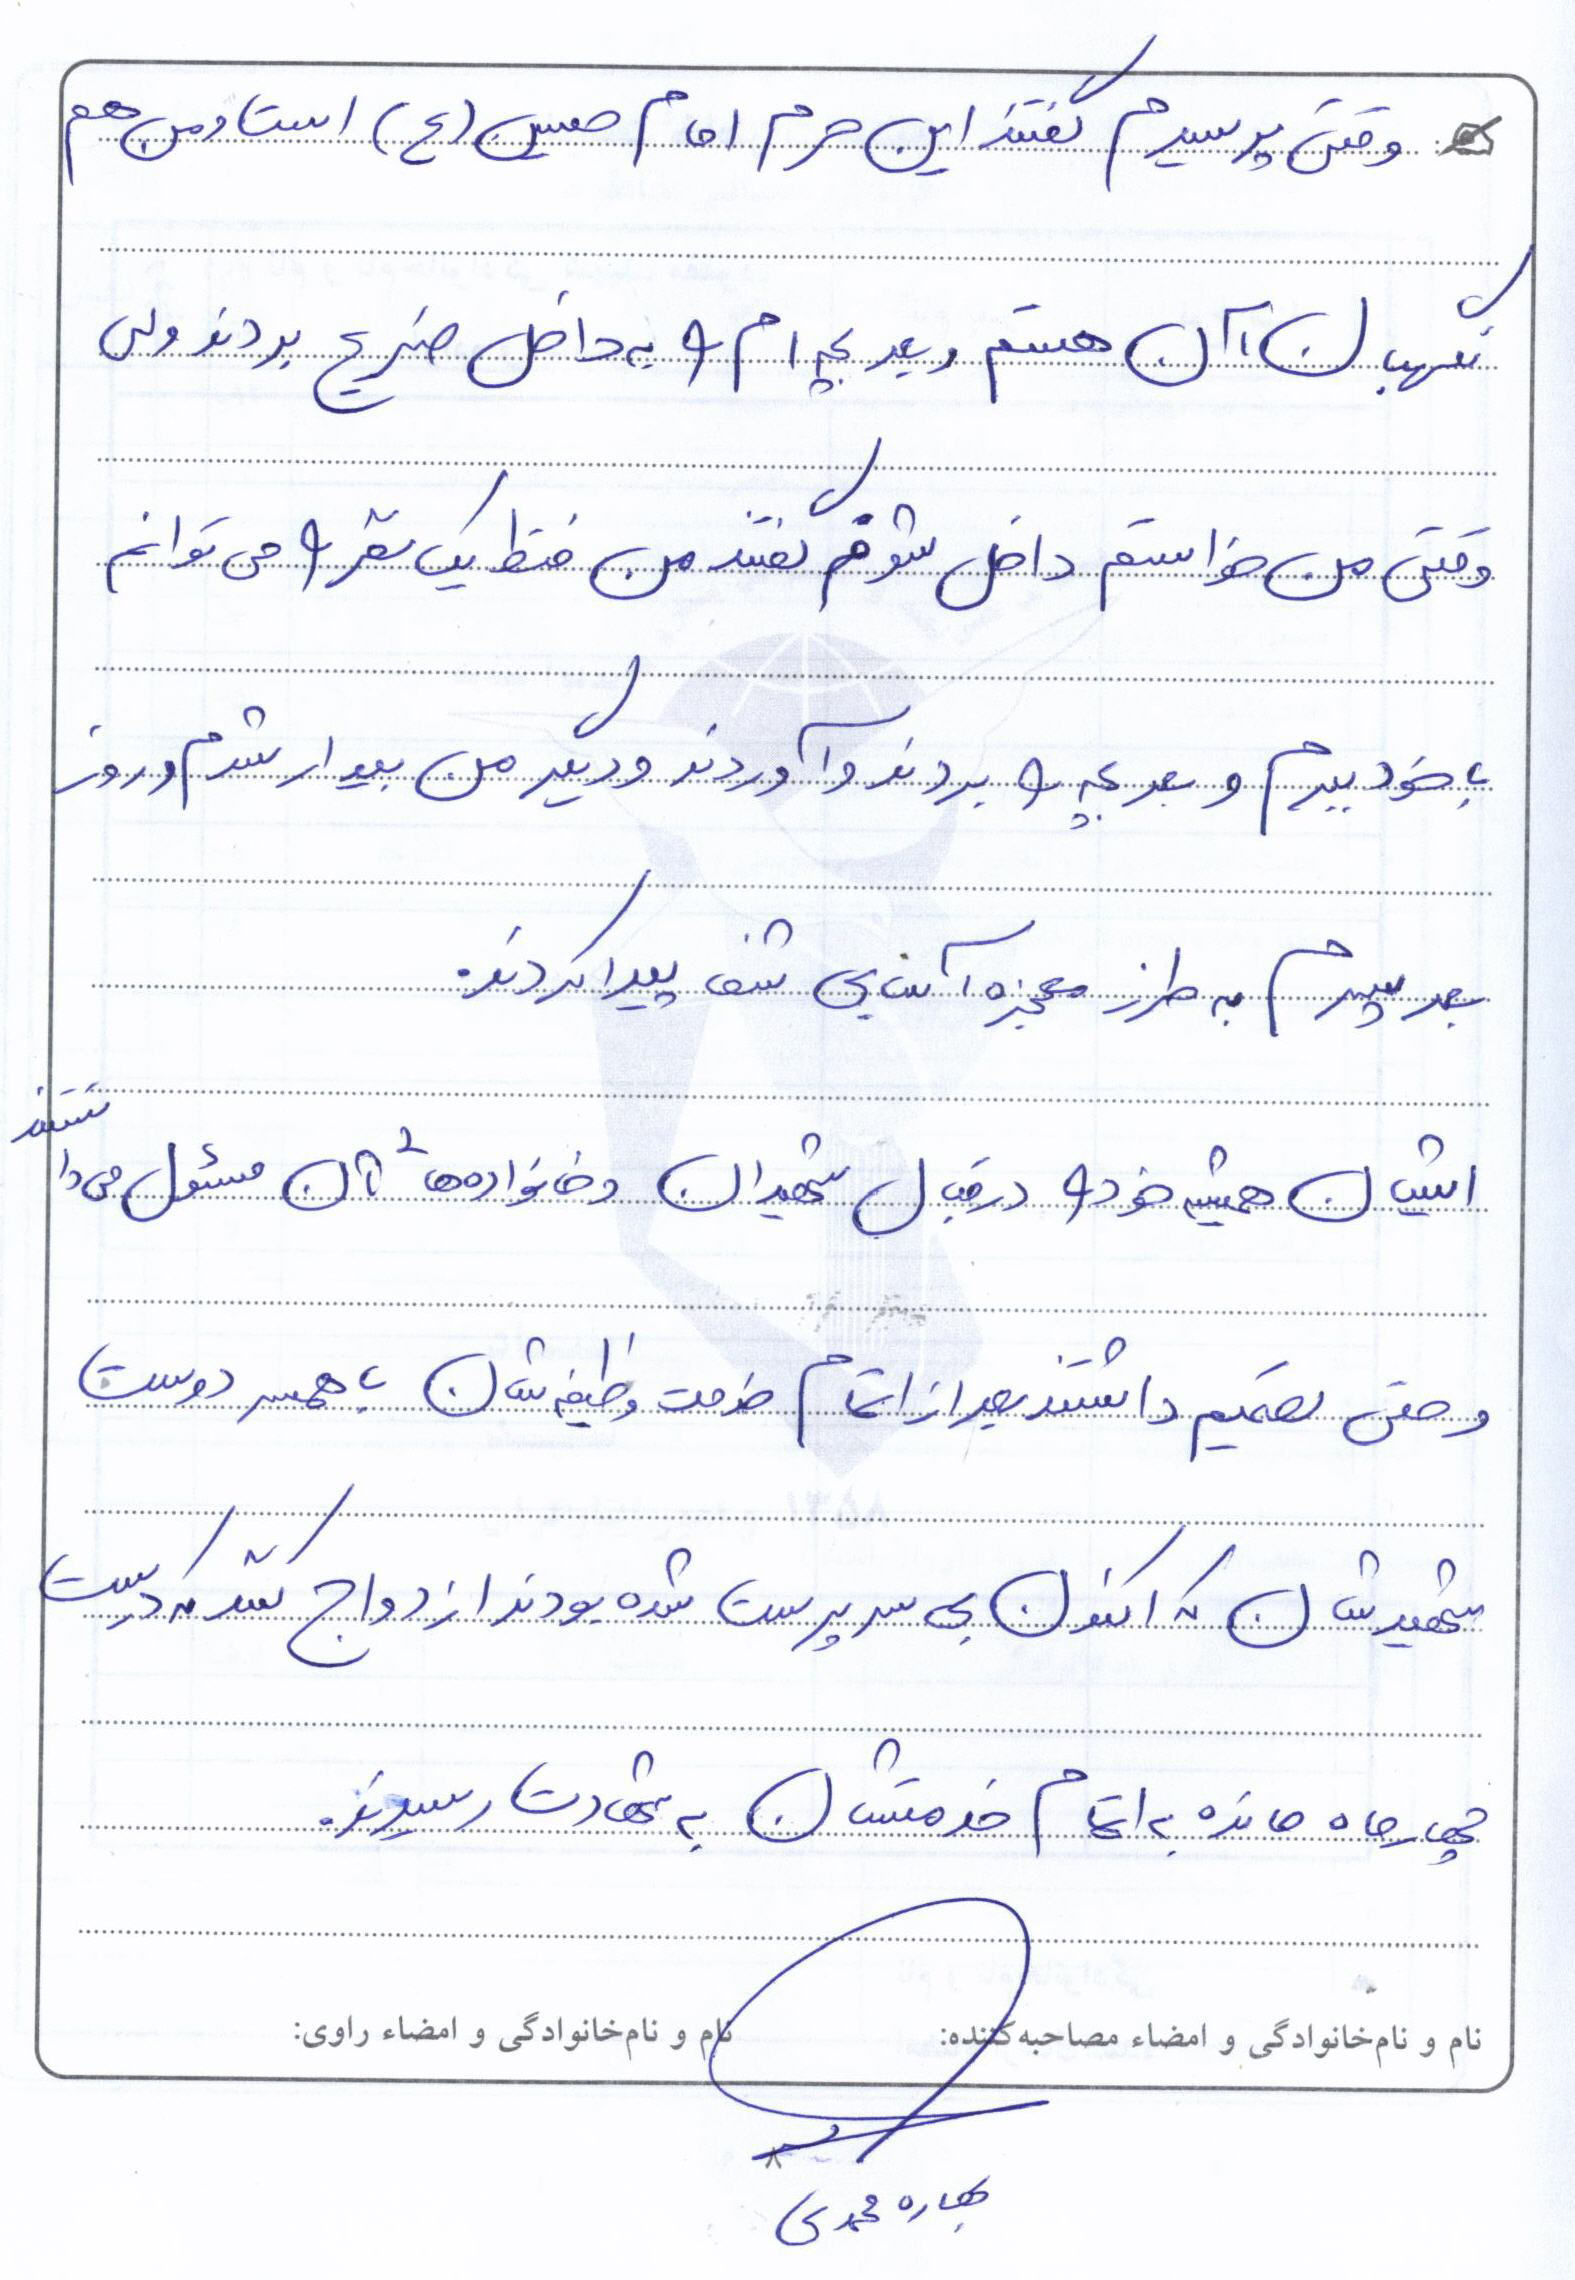 وقتی پرسیدم گفتند این حرم امام حسین (ع) است و من هم
نگهبان آن هستم و بعد بچه ام را به داخل ضریح بردند ولی
وقتی من خواستم داخل شوم گفتند من فقط یک نفر را می توانم
با خود ببرم و بعد بچه را بردند و آوردند و دیگر من بیدار شدم و روز
بعد پسرم به طرز معجزه آسایی شفا پیدا کردند.
ایشان همیشه خود را در قبال شهیدان و خانواده هایشان مسئول می دانستند
و حتی تصمیم داشتند بعد از اتمام خدمت وظیفه شان با همسر دوست
شهیدشان که اکنون بی سرپرست شده بودند ازدواج کنند که درست
چهار ماه مانده به اتمام خدمتشان به شهادت رسیدند.
نام و نام‌خانوادگی و امضاء مصاحبه‌کننده: نام و نام‌خانوادگی و امضاء راوی:
۸
بهاره محمدی